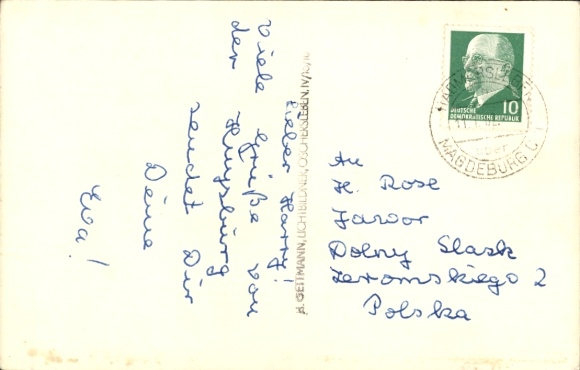 Lieber Harry!
Viele Grüße von
der Huysburg
sendet Dir
Deine
Eva!
H. GEITMANN, LICHTBILDNER, OSCHERSLEBEN, IV/10/10
DEUTSCHE
DEMOKRATISCHE REPUBLIK
10
MAGDEBURG
An
H. Rose
Jawor
Dolny Slask
Żeromskiego 2
Polska